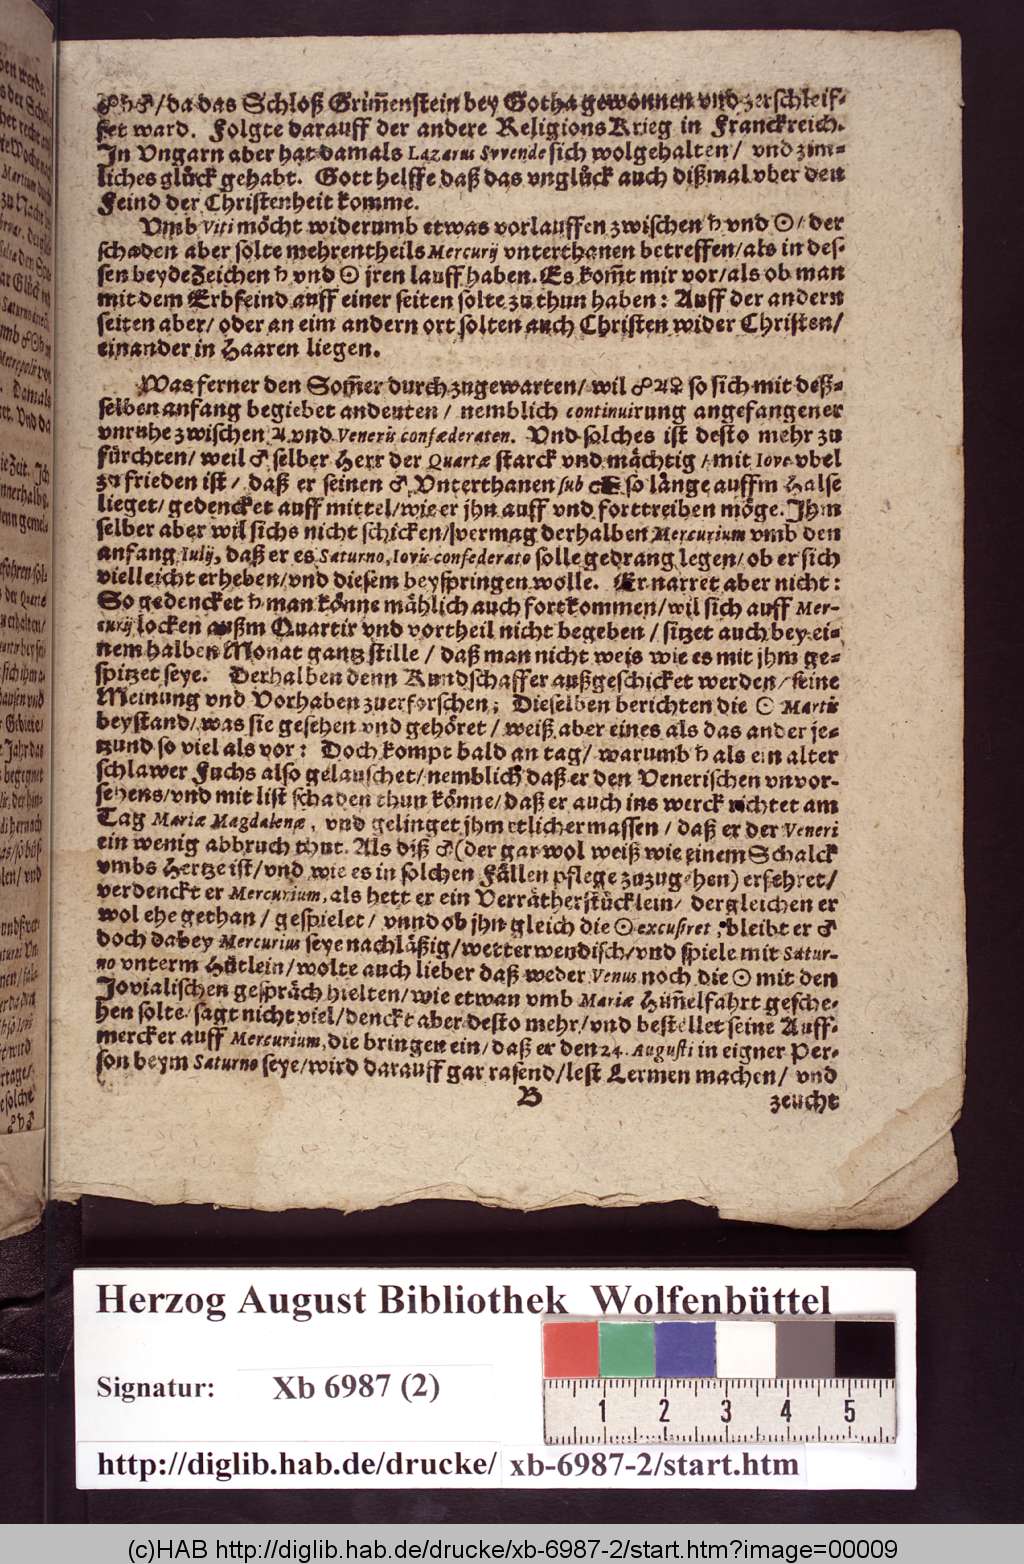 ☍♄♂/ da das Schloß Grim̃enstein bey Gotha gewonnen vnd zerschleif-
fet ward. Folgte darauff der andere ReligionsKrieg in Franckreich.
In Vngarn aber hat damals Lazarus Svvende sich wolgehalten/ vnd zim-
liches glück gehabt. Gott helffe daß das vnglück auch dißmal vber den
Feind der Christenheit komme.
Vmb Viti möcht widerumb etwas vorlauffen zwischen ♄ vnd ☉/ der
schaden aber solte mehrentheils Mercurij vnterthanen betreffen/als in des-
sen beyde Zeichen ♄ vnd ☉ jren lauff haben. Es kom̃t mir vor/als ob man
mit dem Erbfeind auff einer seiten solte zu thun haben: Auff der andern
seiten aber/ oder an eim andern ort solten auch Christen wider Christen/
einander in Haaren liegen.
Was ferner den Som̃er durch zugewarten/ wil ☍♃♀ so sich mit deß-
selben anfang begiebet andeuten/ nemblich continuirung angefangener
vnruhe zwischen ♃ vnd Veneris confæderaten. Vnd solches ist desto mehr zu
fürchten/ weil ♂ selber Herr der Quartæ starck vnd mächtig/ mit Iove vbel
zu frieden ist/ daß er seinen ♂. Vnterthanen sub so lange auffm Halse
lieget/ gedencket auff mittel/wie er jhn auff vnd forttreiben möge. Jhm
selber aber wil sichs nicht schicken/vermag derhalben Mercurium vmb den
anfang Iulij, daß er es Saturno, Iovis confederato solle gedrang legen/ ob er sich
vielleicht erheben/vnd diesem beyspringen wolle. Er narret aber nicht:
So gedencket ♄ man könne mählich auch fortkommen/wil sich auff Mer-
curij locken außm Quartir vnd vortheil nicht begeben/ sitzet auch bey ei-
nem halben Monat gantz stille/ daß man nicht weis wie es mit jhm ge-
spitzet seye. Derhalben denn Kundschaffer außgeschicket werden/ seine
Meinung vnd Vorhaben zuerforschen; Dieselben berichten die ☉ Martis
beystand/ was sie gesehen vnd gehöret/ weiß aber eines als das ander je-
tzund so viel als vor: Doch kompt bald an tag/ warumb ♄ als ein alter
schlawer Fuchs also gelauschet/ nemblich daß er den Venerischen vnvor-
sehens/vnd mit list schaden thun könne/ daß er auch ins werck richtet am
Tag Mariæ Magdalenæ, vnd gelinget jhm etlicher massen/ daß er der Veneri
ein wenig abbruch thut. Als diß ♂ (der gar wol weiß wie einem Schalck
vmbs Hertze ist/vnd wie es in solchen Fällen pflege zuzugehen) erfehret/
verdenckt er Mercurium, als hett er ein Verrätherstücklein/ dergleichen er
wol ehe gethan/ gespielet/ vnnd ob jhn gleich die ☉ excusiret, bleibt er ♂
doch dabey Mercurius seye nachläßig/ wetterwendisch/vnd spiele mit Satur-
no vnterm Hütlein/wolte auch lieber daß weder Venus noch die ☉ mit den
Jovialischen gespräch hielten/wie etwan vmb Mariæ Him̃elfahrt gesche-
hen solte/ sagt nicht viel/denckt aber desto mehr/vnd bestellet seine Auff-
mercker auff Mercurium, die bringen ein/ daß er den 24. Augusti in eigner Per-
son beym Saturno seye/wird darauff gar rasend/lest Lermen machen/ vnd
B zeucht
Herzog August Bibliothek Wolfenbüttel
Signatur: Xb 6987 (2)
1 2 3 4 5
http://diglib.hab.de/drucke/ xb-6987-2/start.htm
(c)HAB http://diglib.hab.de/drucke/xb-6987-2/start.htm?image=00009